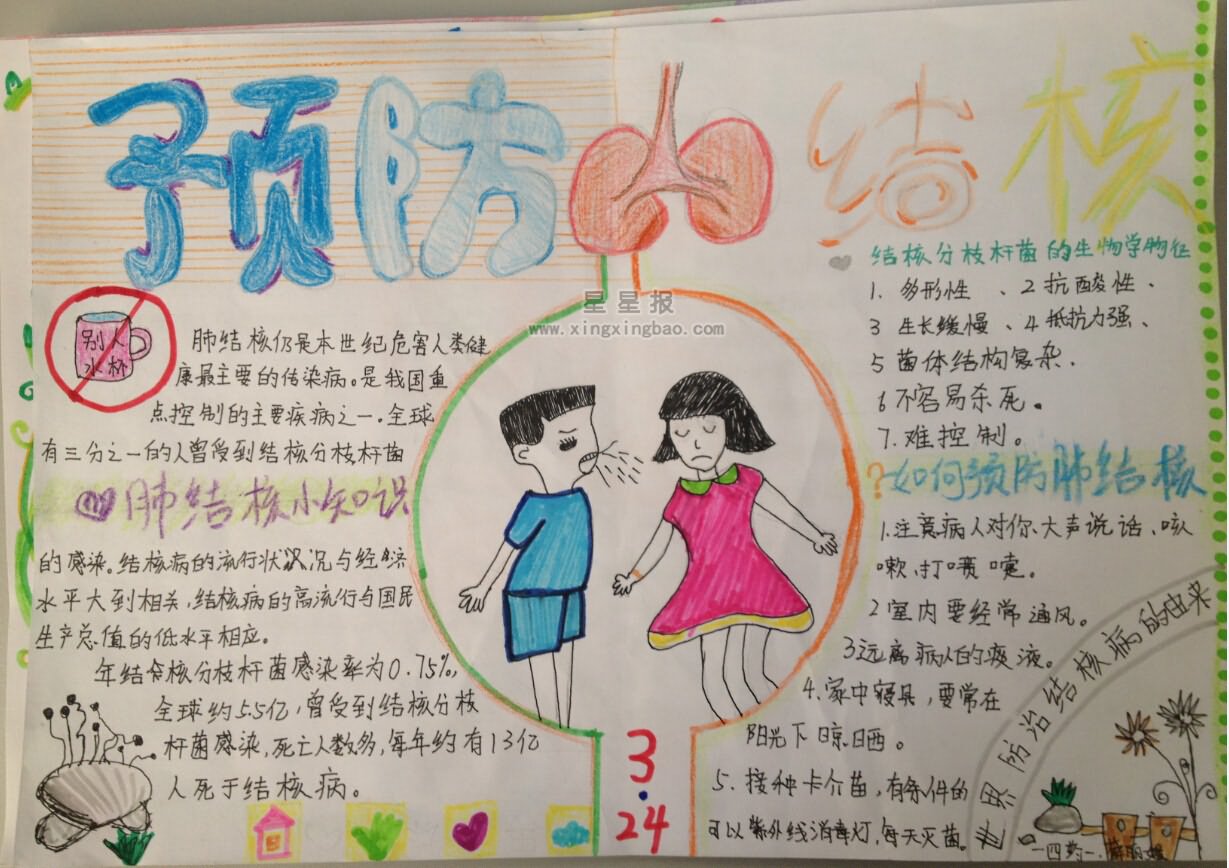 预防 结核
星星报
www.xingxingbao.com
别人
水杯
肺结核仍是本世纪危害人类健
康最主要的传染病。是我国重
点控制的主要疾病之一.全球
有三分之一的人曾受到结核分枝杆菌
肺结核小知识
的感染。结核病的流行状况与经济
水平大到相关,结核病的高流行与国民
生产总值的低水平相应。
年结核分枝杆菌感染率为0.75%,
全球约5.5亿,曾受到结核分枝
杆菌感染,死亡人数多,每年约有13亿
人死于结核病。
3.24
结核分枝杆菌的生物学物征
1、多形性、2抗酸性、
3 生长缓慢、4抵抗力强、
5菌体结构复杂.
6不容易杀死。
7.难控制。
?如何预防肺结核
1.注意病人对你大声说话、咳
嗽、打喷嚏。
2室内要经常通风。
3远离病人的痰液。
4.家中寝具,要常在
阳光下晾晒。
5.接种卡介苗,有条件的
可以紫外线消毒灯,每天灭菌。
世界防治结核病日的由来